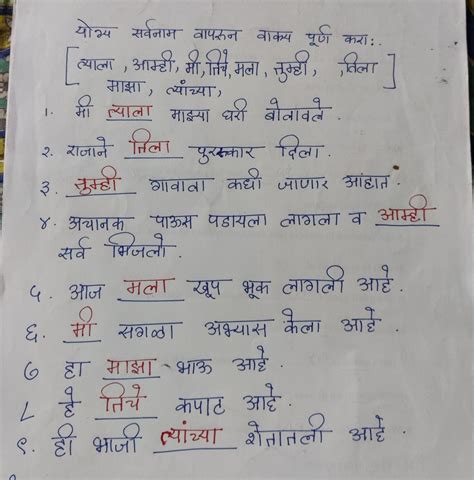 योग्य सर्वनाम वापरुन वाक्य पूर्ण करा:.
[त्याला, आम्ही, मी, तिचे, मला, तुम्ही, तिला
माझा, त्यांच्या,]
१. मी त्याला माझ्या घरी बोलावले.
२. राजाने तिला पुरस्कार दिला.
३. तुम्ही गावाला कधी जाणार आहात.
४. अचानक पाऊस पडायला लागला व आम्ही
सर्व भिजलो.
५. आज मला खूप भूक लागली आहे.
६. मी सगळा अभ्यास केला आहे.
७ हा माझा भाऊ आहे.
८ हे तिचे कपाट आहे.
९. ही भाजी त्यांच्या शेतातली आहे.